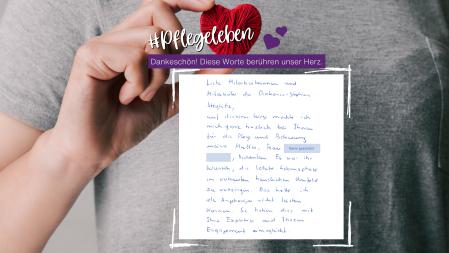 #Pflegeleben
Dankeschön! Diese Worte berühren unser Herz.
Liebe Mitarbeiterinnen und
Mitarbeiter der Diakonie-Station
Steglitz,
auf diesem Wege möchte ich
mich ganz herzlich bei Ihnen
für die Pflege und Betreuung
meiner Mutter, Frau
, bedanken. Es war ihr
Wunsch, die letzte Lebensphase
im vertrauten häuslichen Umfeld
zu verbringen. Das hätte ich
als Angehörige nicht leisten
können. Sie haben dies mit
Ihrer Expertise und Ihrem
Engagement ermöglicht.